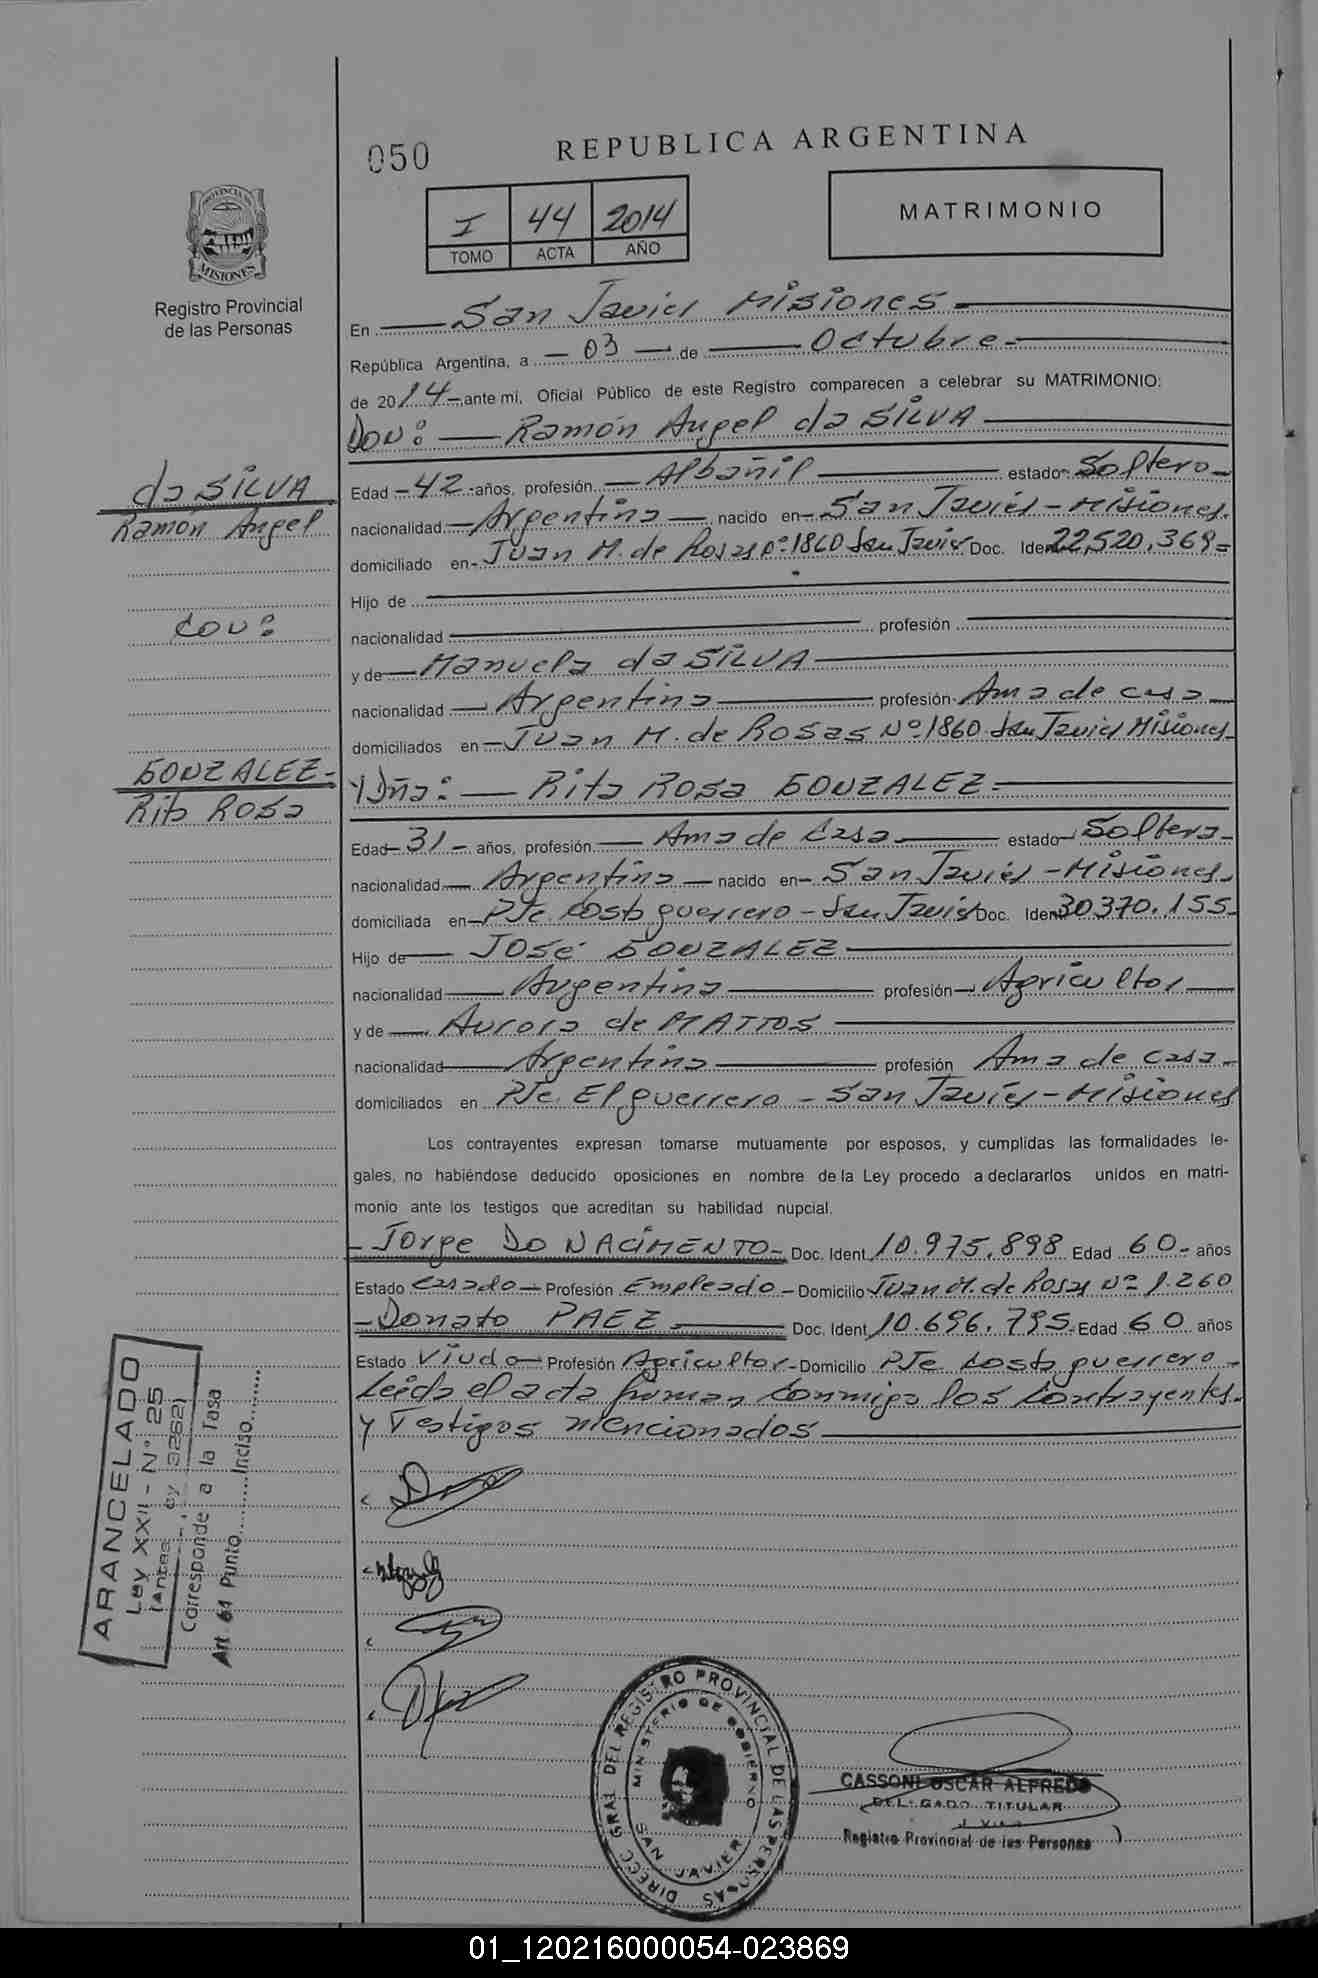 050
REPUBLICA ARGENTINA
I 44 2014
TOMO ACTA AÑO
MATRIMONIO
PROVINCIA DE
MISIONES
Registro Provincial
de las Personas
En San Javier Misiones
República Argentina, a 03 de Octubre
de 2014 ante mi, Oficial Público de este Registro comparecen a celebrar su MATRIMONIO:
Don: Ramón Angel da SILVA
da SILVA
Ramón Angel
con:
GONZALEZ
Rita Rosa
Edad 42 años, profesión Albañil estado Soltero
nacionalidad Argentina nacido en San Javier - Misiones
domiciliado en Juan M. de Rosas nº 1860 San Javier Doc. Iden 22,520,369
Hijo de
nacionalidad profesión
y de Manuela da SILVA
nacionalidad Argentina profesión Ama de casa
domiciliados en Juan M. de Rosas Nº 1860 San Javier Misiones
Y Dña: Rita Rosa GONZALEZ
Edad 31 años, profesión Ama de Casa estado Soltera
nacionalidad Argentina nacido en San Javier - Misiones
domiciliada en PJe. Costa guerrero - San Javier Doc. Iden 30370.155
Hijo de José GONZALEZ
nacionalidad Argentina profesión Agricultor
y de Aurora de MATTOS
nacionalidad Argentina profesión Ama de casa
domiciliados en PJe. El guerrero - San Javier - Misiones
Los contrayentes expresan tomarse mutuamente por esposos, y cumplidas las formalidades le-
gales, no habiéndose deducido oposiciones en nombre de la Ley procedo a declararlos unidos en matri-
monio ante los testigos que acreditan su habilidad nupcial.
Jorge DO NACIMENTO Doc. Ident 10.975.898 Edad 60 años
Estado Casado Profesión Empleado Domicilio Juan M. de Rosas Nº 1.260
Donato PAEZ Doc. Ident 10.696.795 Edad 60 años
Estado Viudo Profesión Agricultor Domicilio PJe Costa guerrero
Leida el acta firman conmigo los contrayentes
y Testigos mencionados
ARANCELADO
Ley XXII - Nº 25
(Antes Ley 3262)
Corresponde a la Tasa
Art 61 Punto Inciso
DIRECC. GRAL DEL REGISTRO PROVINCIAL DE LAS PERSONAS
MINISTERIO DE GOBIERNO
SAN JAVIER
CASSONI OSCAR ALFREDO
DELEGADO TITULAR
Registro Provincial de las Personas
01_120216000054-023869